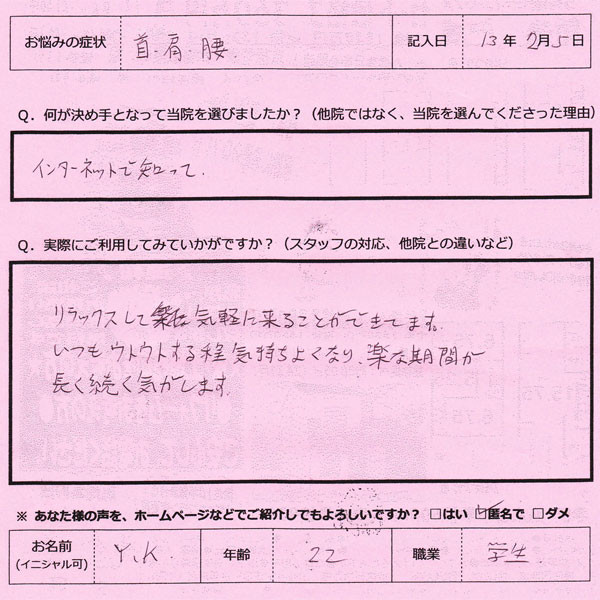 お悩みの症状 首.肩.腰. 記入日 13年 2月5日
Q. 何が決め手となって当院を選びましたか？（他院ではなく、当院を選んでくださった理由）
インターネットで知って.
Q. 実際にご利用してみていかがですか？（スタッフの対応、他院との違いなど）
リラックスして 気軽に来ることができてます.
いつもウトウトする程気持ちよくなり、楽な期間が
長く続く気がします.
※ あなた様の声を、ホームページなどでご紹介してもよろしいですか？ □はい ☑匿名で □ダメ
お名前 Y.K. 年齢 22 職業 学生.
(イニシャル可)